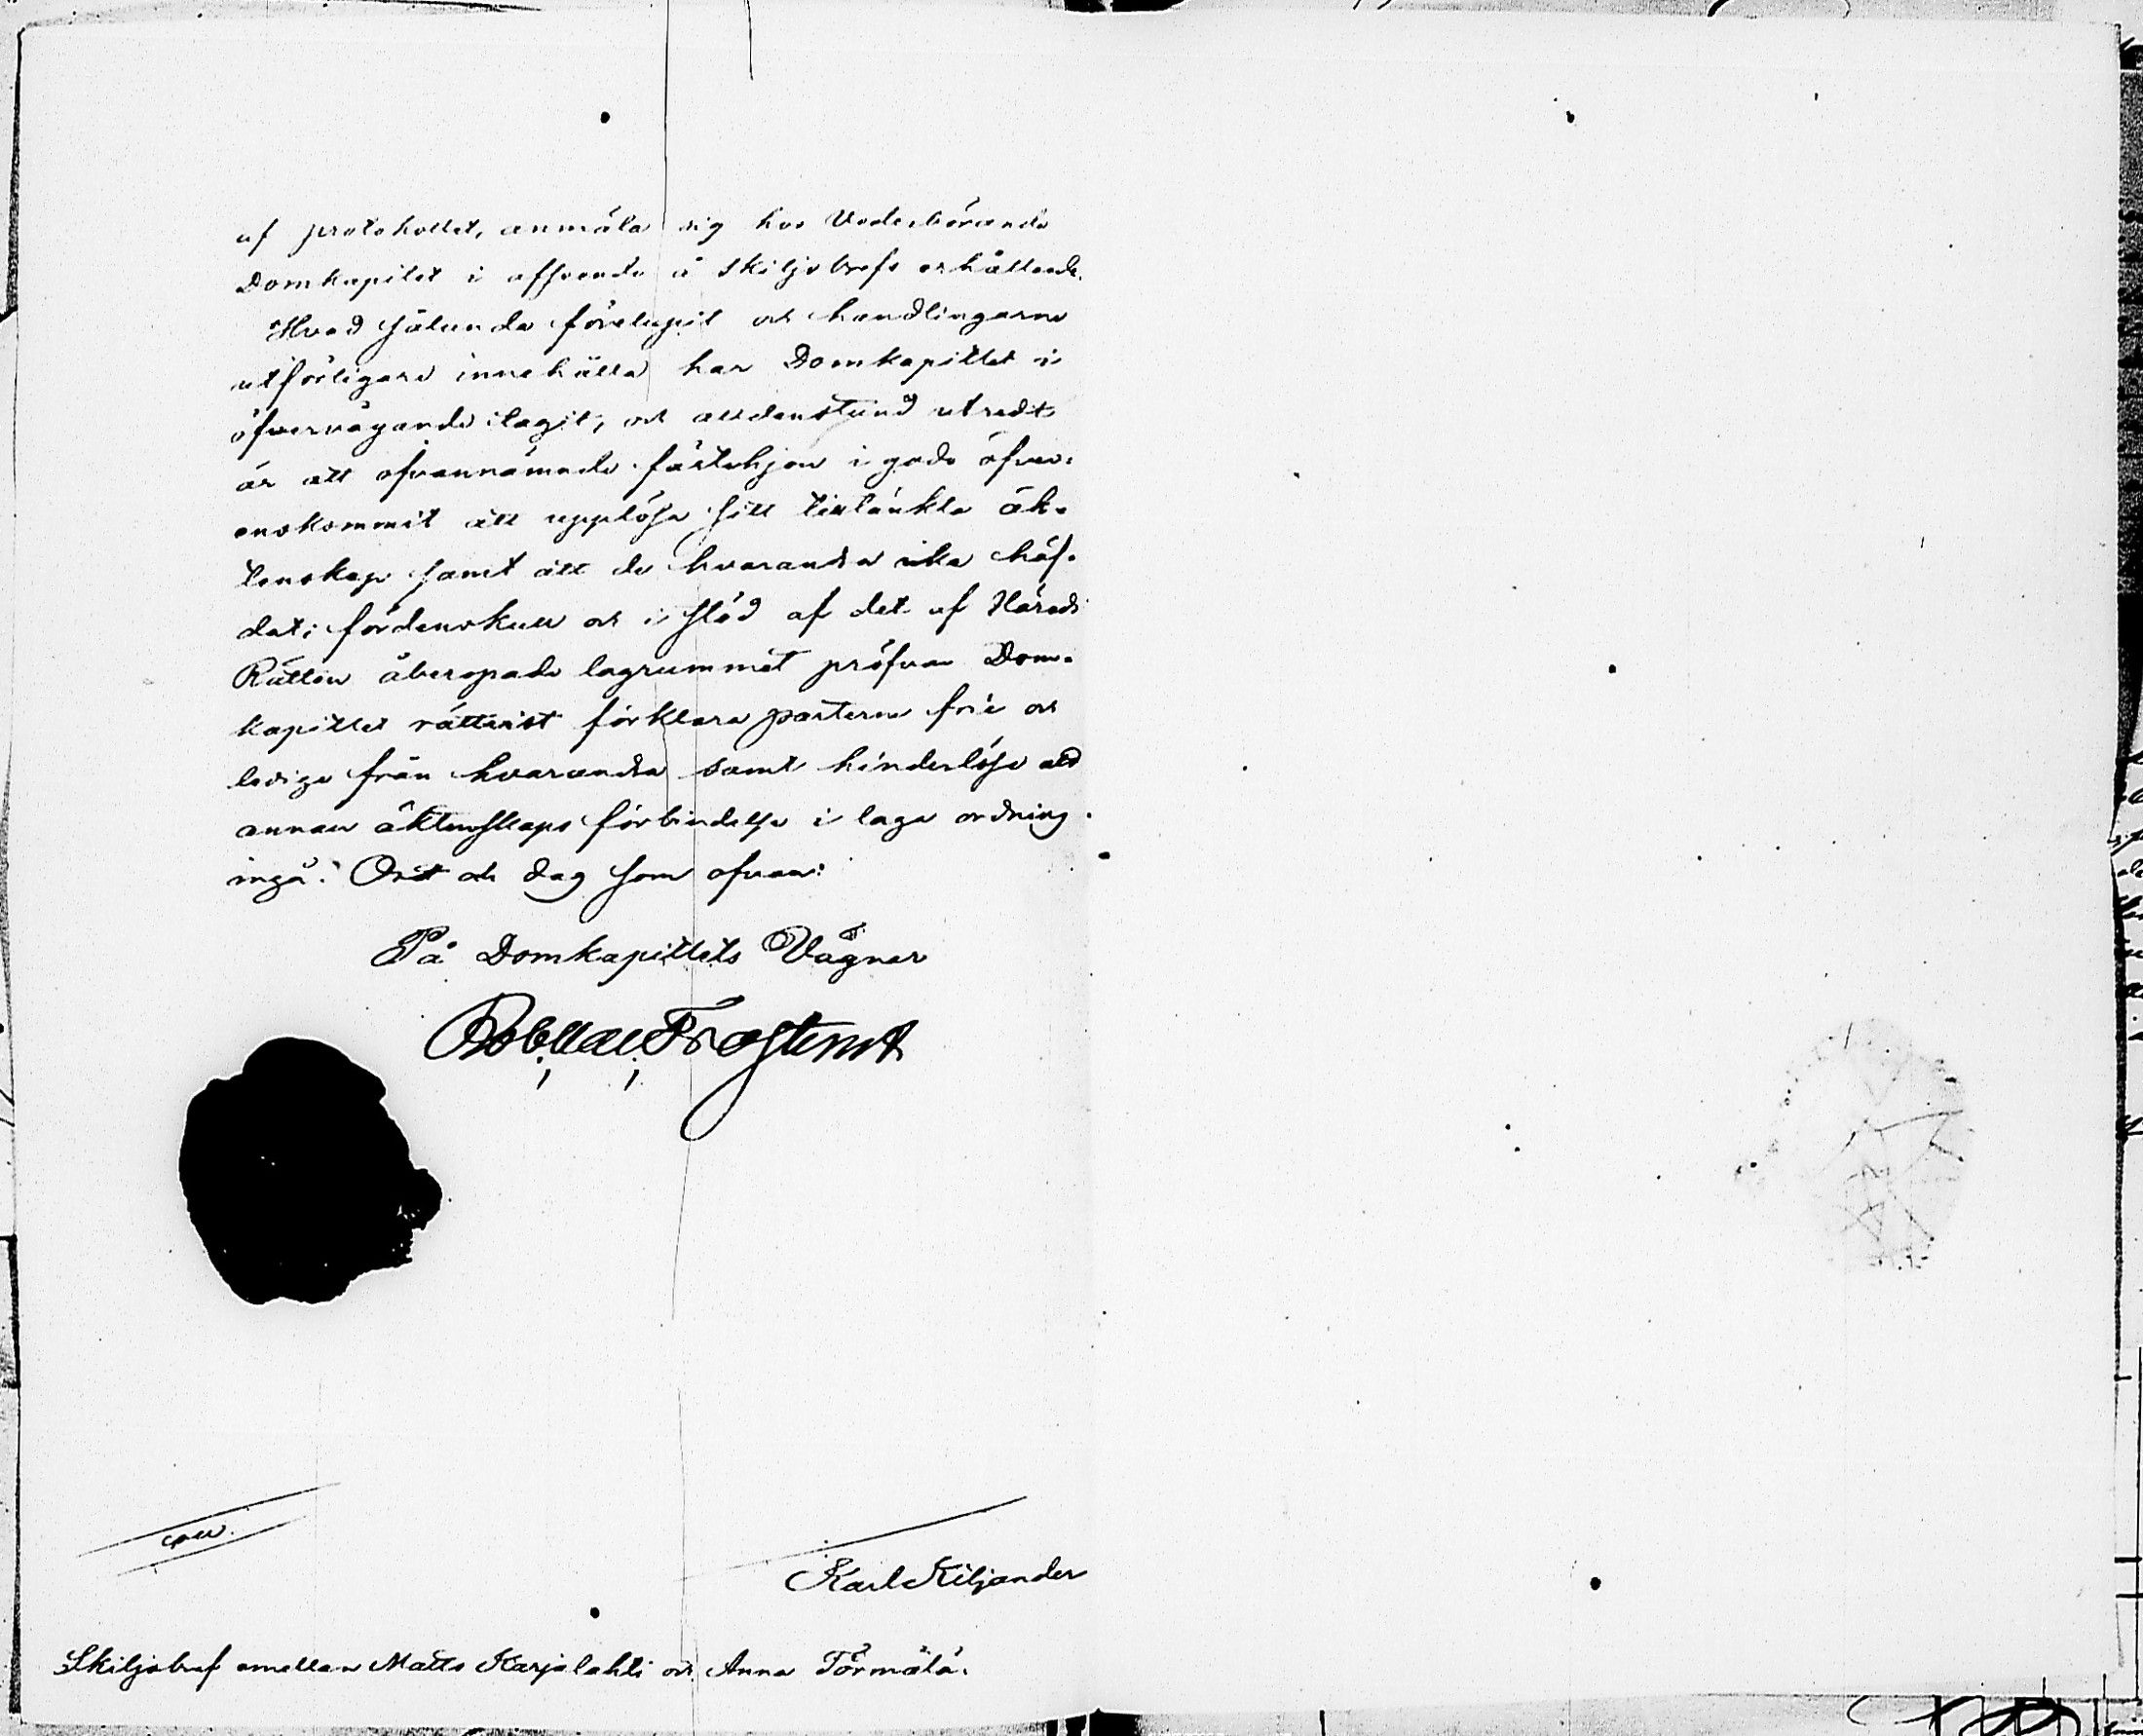 af protokollet, anmäla sig hos Vederbörande
Domkapitel i afseende å skiljobrefs erhållande.
Hvad sålunda förelupit och handlingarne
utförligare innehålla har Domkapitlet i
öfvervägande tagit, och alldenstund utredt
är att ofvannämnde fästehjon i godo öfver-
enskommit att upplösa sitt tilltänkta äk-
tenskap samt att de hvarandra icke häf-
dat; fördenskull och i stöd af det af Härads
Rätten åberopade lagrummet pröfvar Dom-
kapitlet rättvist förklara parterne frie och
lediga från hvarandra samt hinderlöse att
annan äktenskaps förbindelse i laga ordning
ingå. Ort och dag som ofvan:
På Domkapitlets Vägnar
Karl Kiljander
Skiljobref emellan Matts Karjalahti och Anna Törmälä.